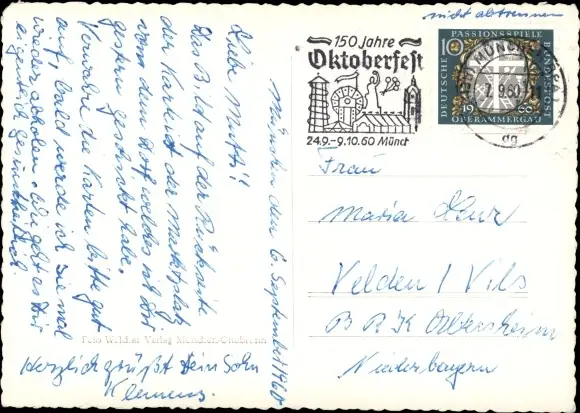 nicht abtrennen
150 Jahre
Oktoberfest
24.9.-9.10.60 Münch
DEUTSCHE BUNDESPOST
PASSIONSSPIELE
10
1960
OBERAMMERGAU
MÜNCHEN
9.60
dg
München den 6. September 1960
Liebe Mutti!
Das Bild auf der Rückseite
der Karte ist der Marktplatz
von dem Dorf welches ich Dir
gestern geschickt habe.
Verwahre die Karten bitte gut
auf, bald werde ich sie mal
wieder abholen. Wie geht es Dir
eigentlich gesundheitlich
Herzlich grüßt Dein Sohn
Klemens.
Foto Verlag München-Ottobrunn
Frau
Maria
Velden / Vils
B R K Altersheim
Niederbayern